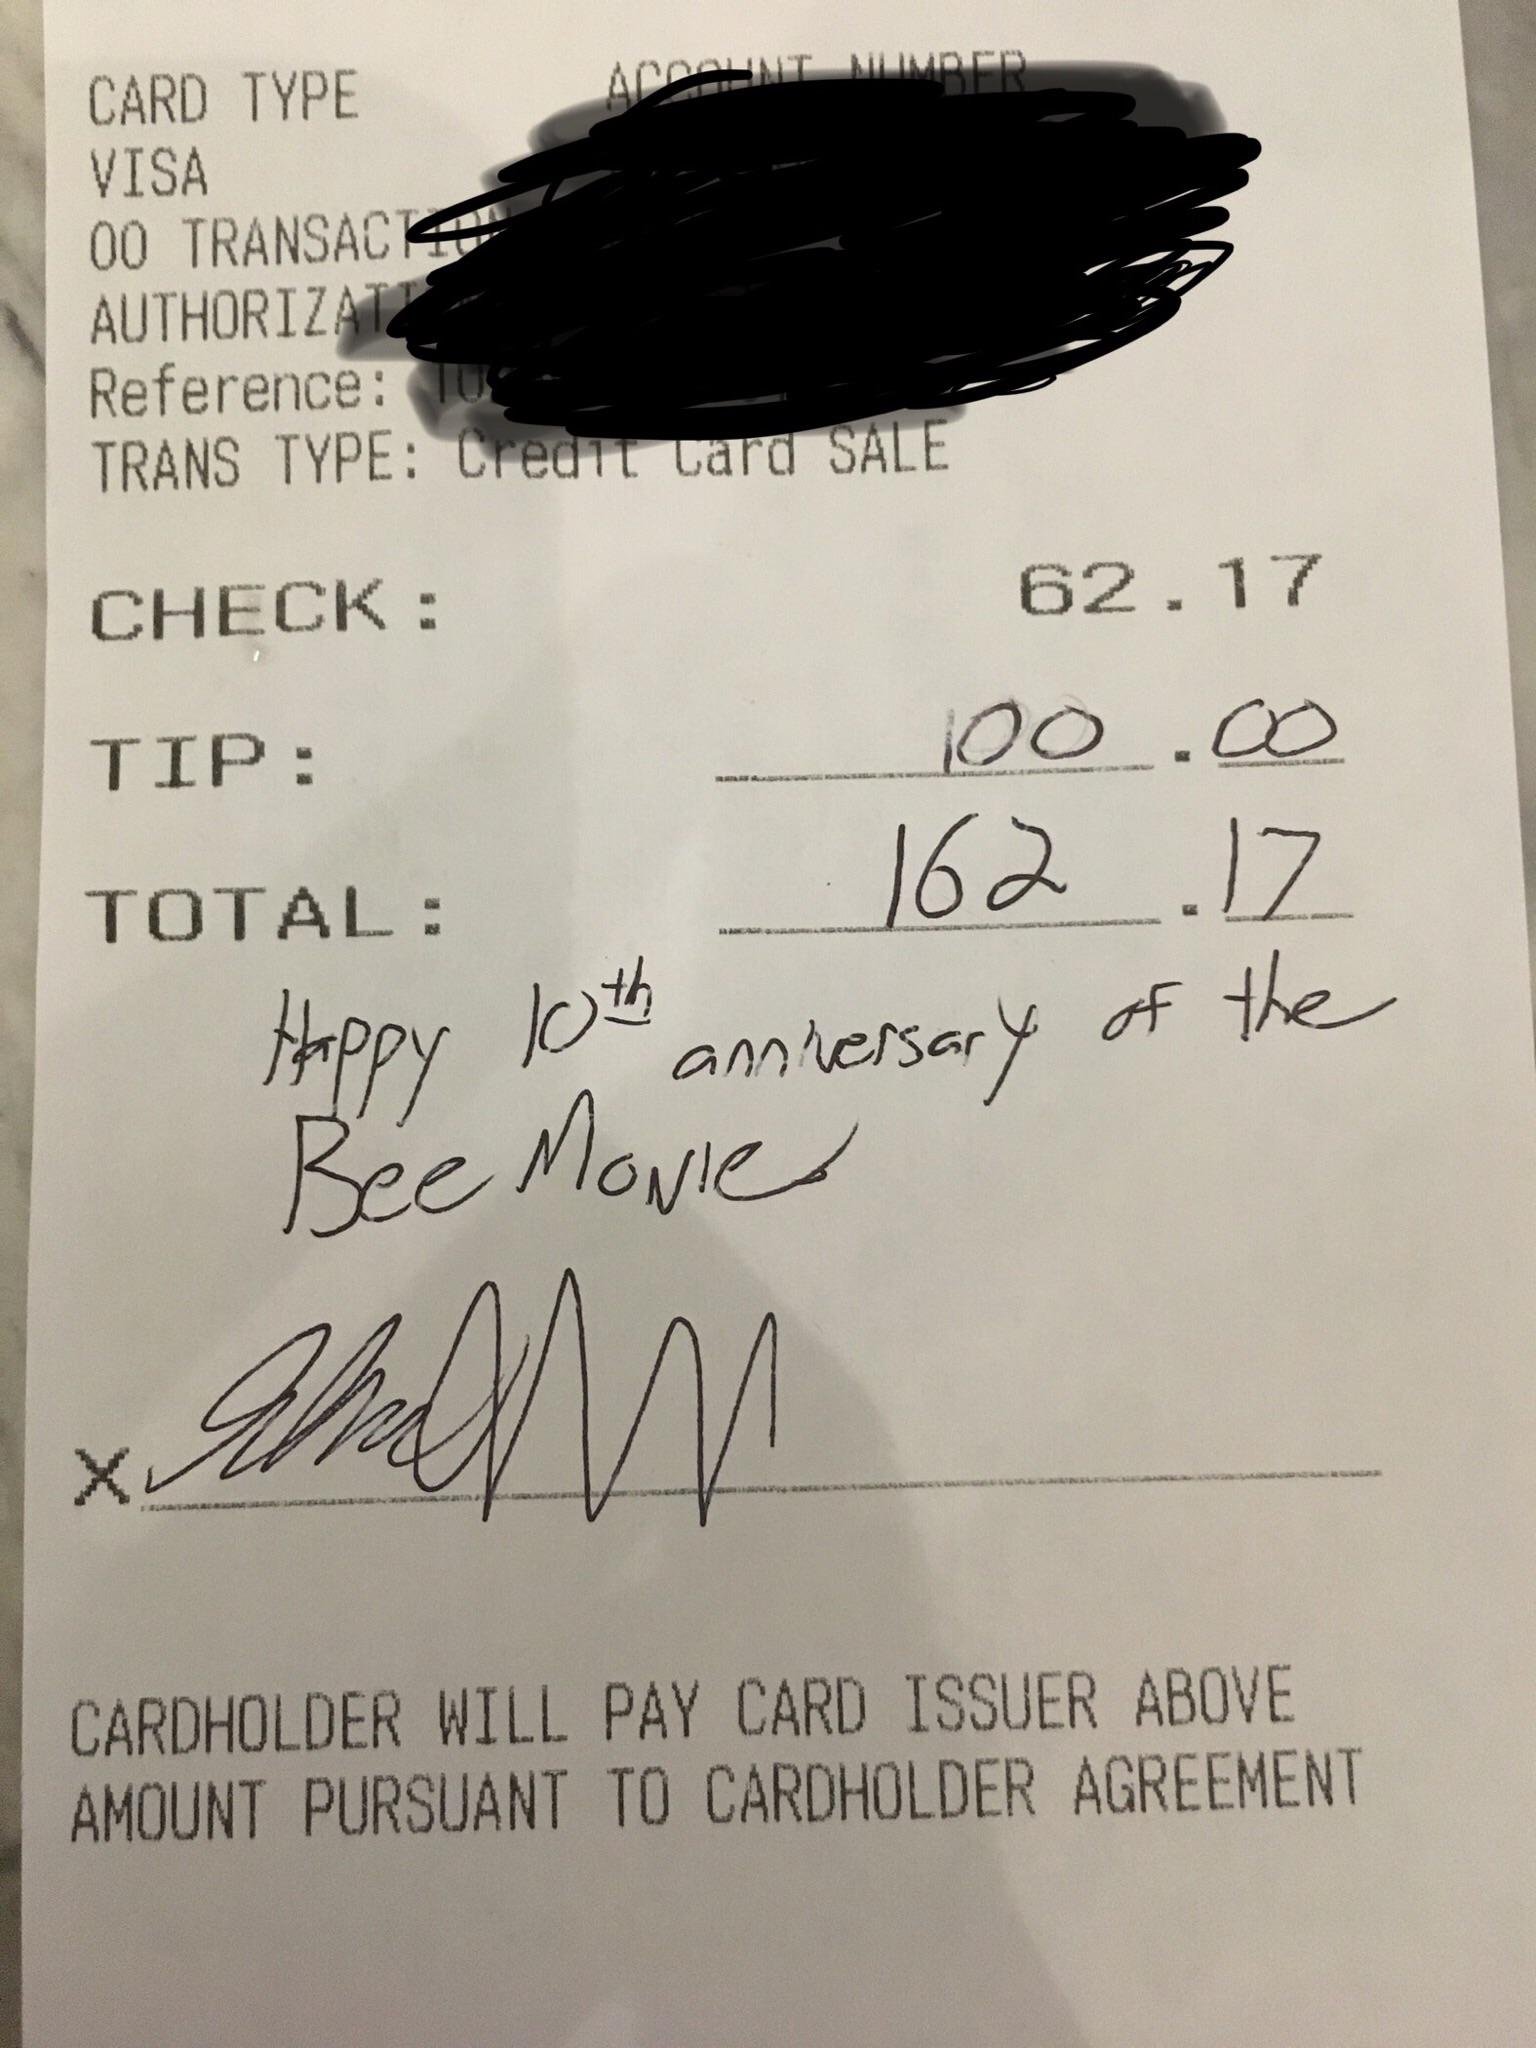 CARD TYPE ACCOUNT NUMBER
VISA
00 TRANSACTION
AUTHORIZATI
Reference:
TRANS TYPE: Credit Card SALE
CHECK: 62.17
TIP: 100.00
TOTAL: 162.17
Happy 10th anniversary of the
Bee Movie
X
CARDHOLDER WILL PAY CARD ISSUER ABOVE
AMOUNT PURSUANT TO CARDHOLDER AGREEMENT